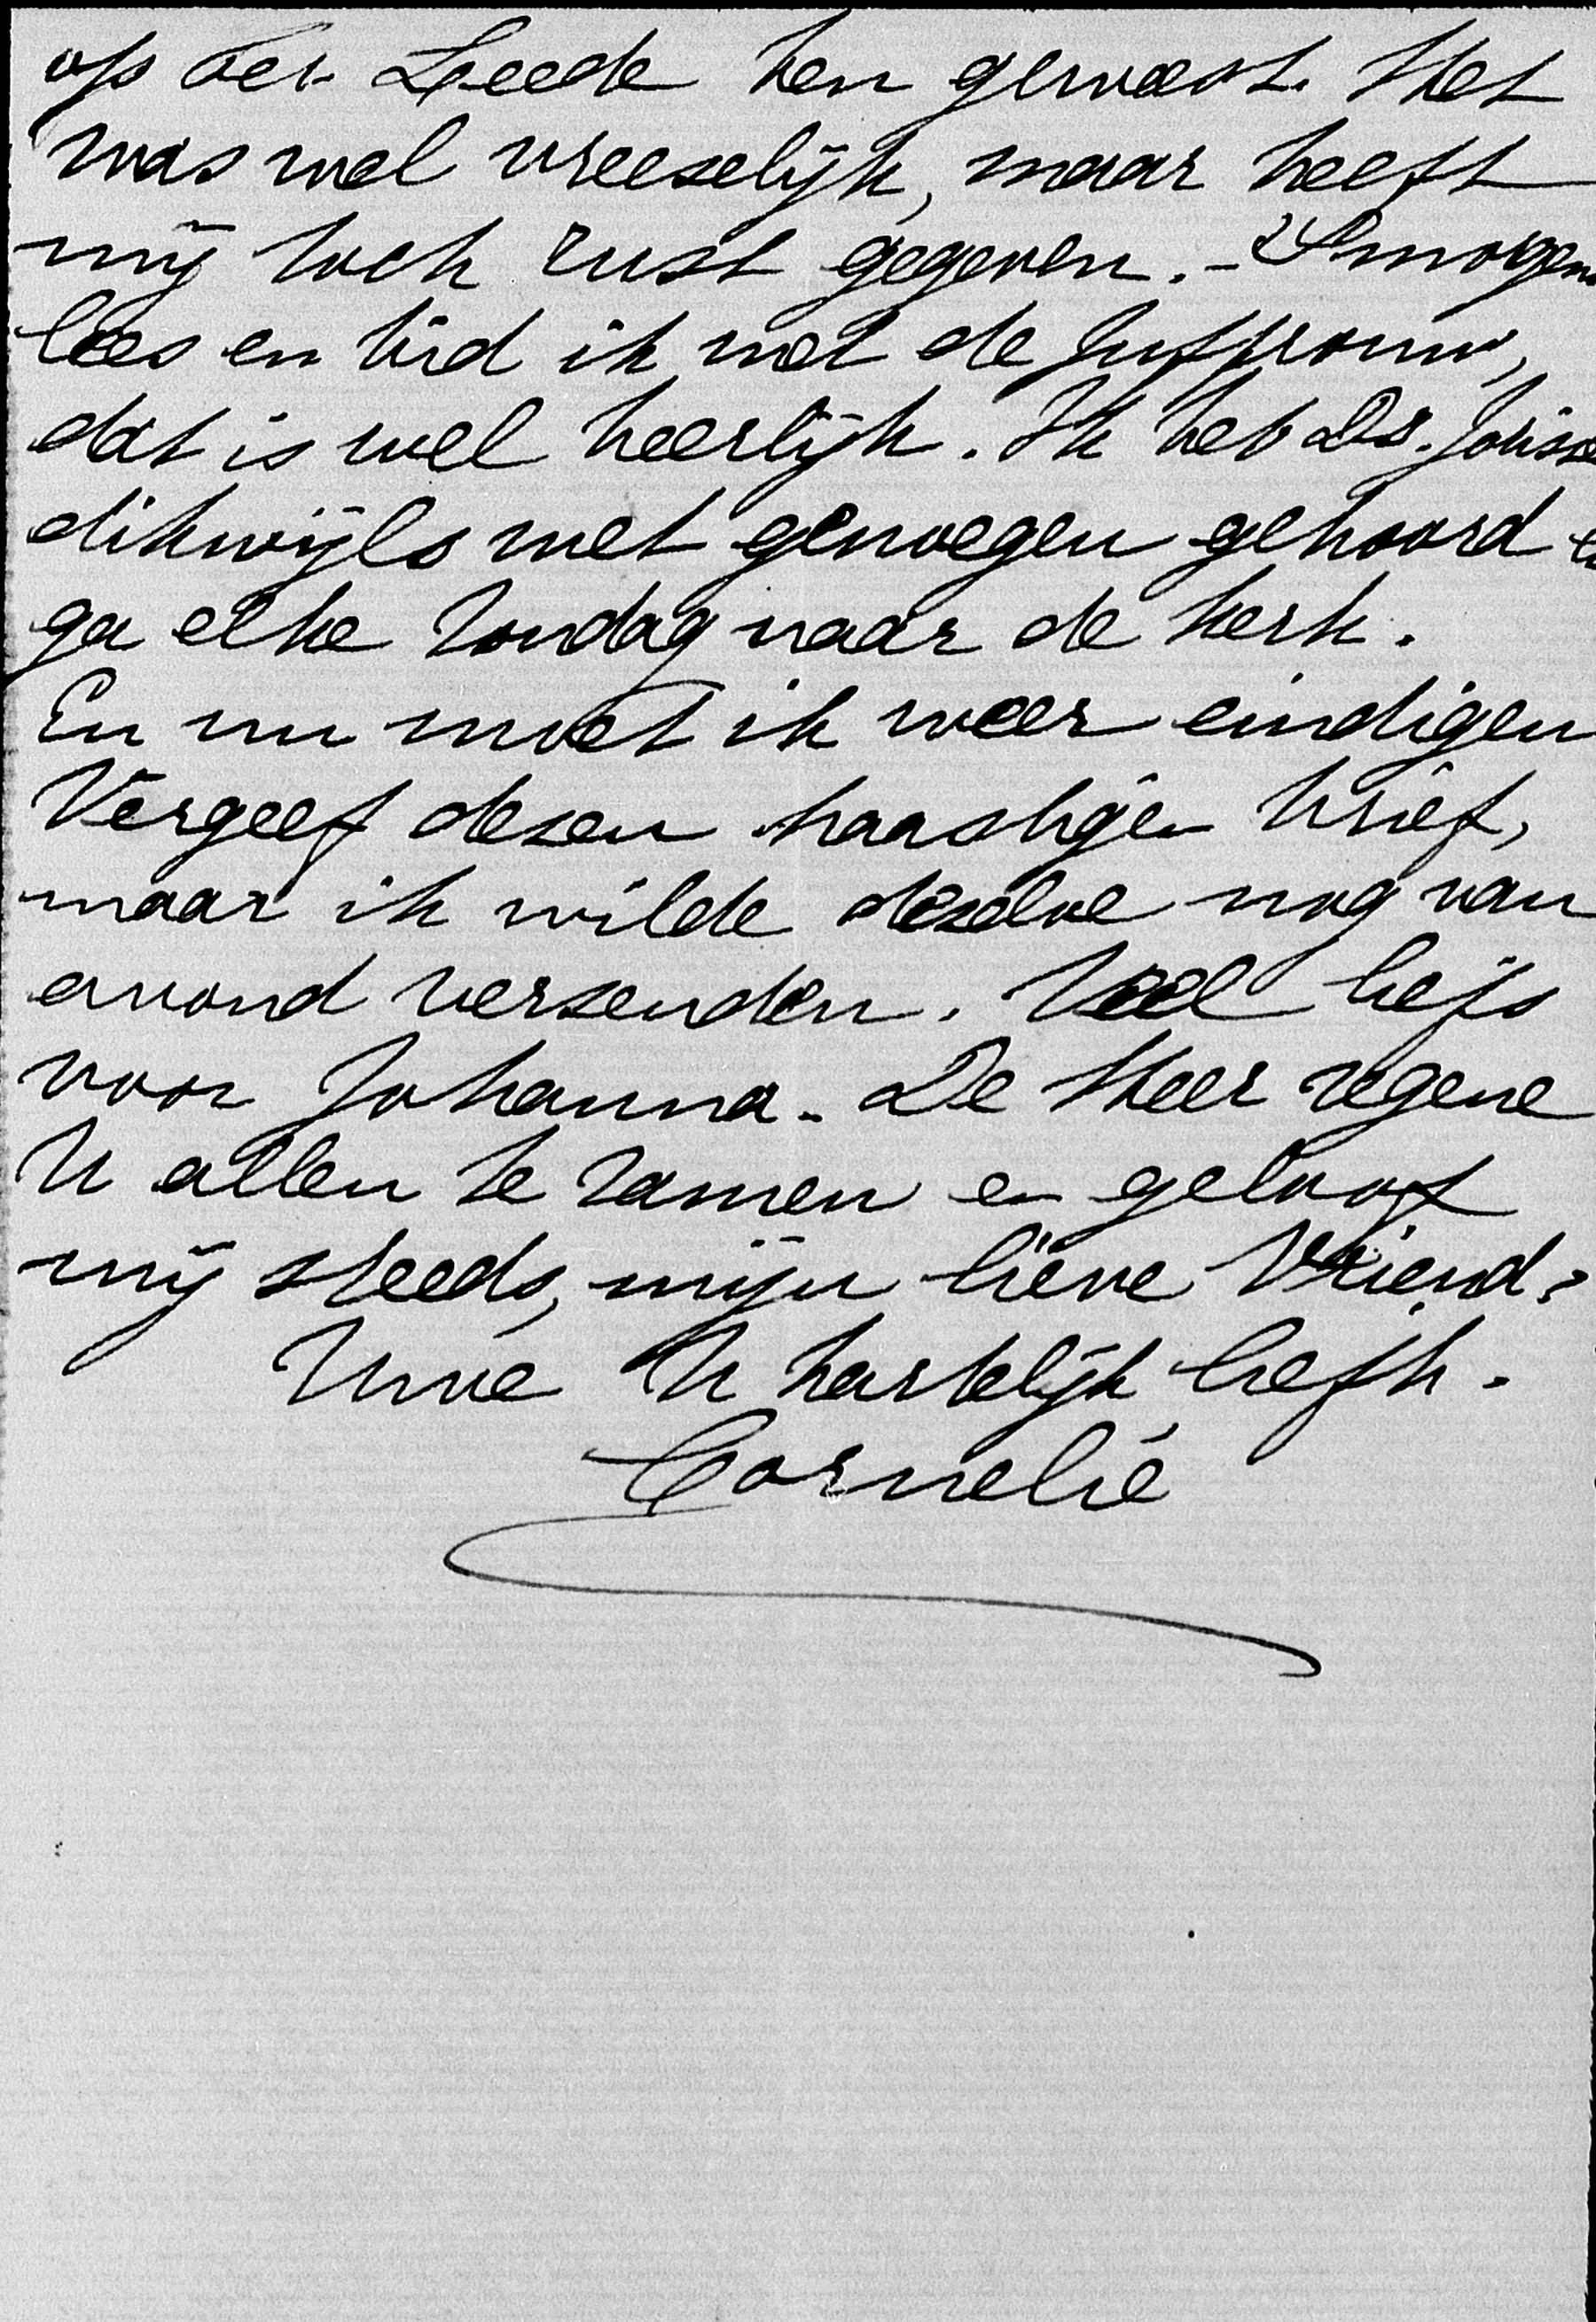 op ter Leede ben geweest. Het
was wel vreeselijk, maar heeft
mij toch rust gegeven. - 'Smorgens
lees en bid ik met de Juffrouw,
dat is wel heerlijk. Ik heb Ds. Joriss
dikwijls met genoegen gehoord en
ga elke Zondag naar de kerk.
En nu moet ik weer eindigen
Vergeef dezen haastigen brief,
maar ik wilde dezelve nog van
avond verzenden. Veel liefs
voor Johanna. De Heer zegene
U allen te zamen en geloof
mij steeds, mijn lieve Vriend,
Uwe U hartelijk liefh.
Cornelie